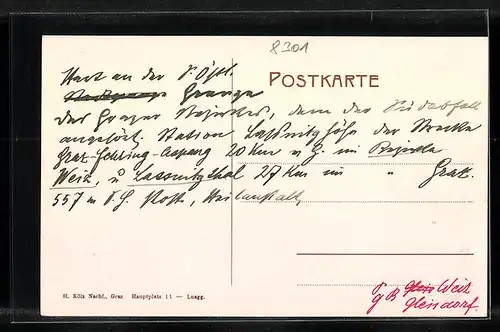 8301
POSTKARTE
Hart an der S. Östl.
Grenze
des Grazer Bezirkes, dem der Südabfall
angehört. Station Laßnitzhöhe der Strecke
Graz-Fehring-Aspang 20 Km v. G. im Bezirke
Weiz, Lassnitzthal 27 Km im " Graz.
557 m S. H. Post, Heilanstalt,
H. Kölz Nachf., Graz Hauptplatz 11 — Luegg.
GB Weiz
Gleisdorf.